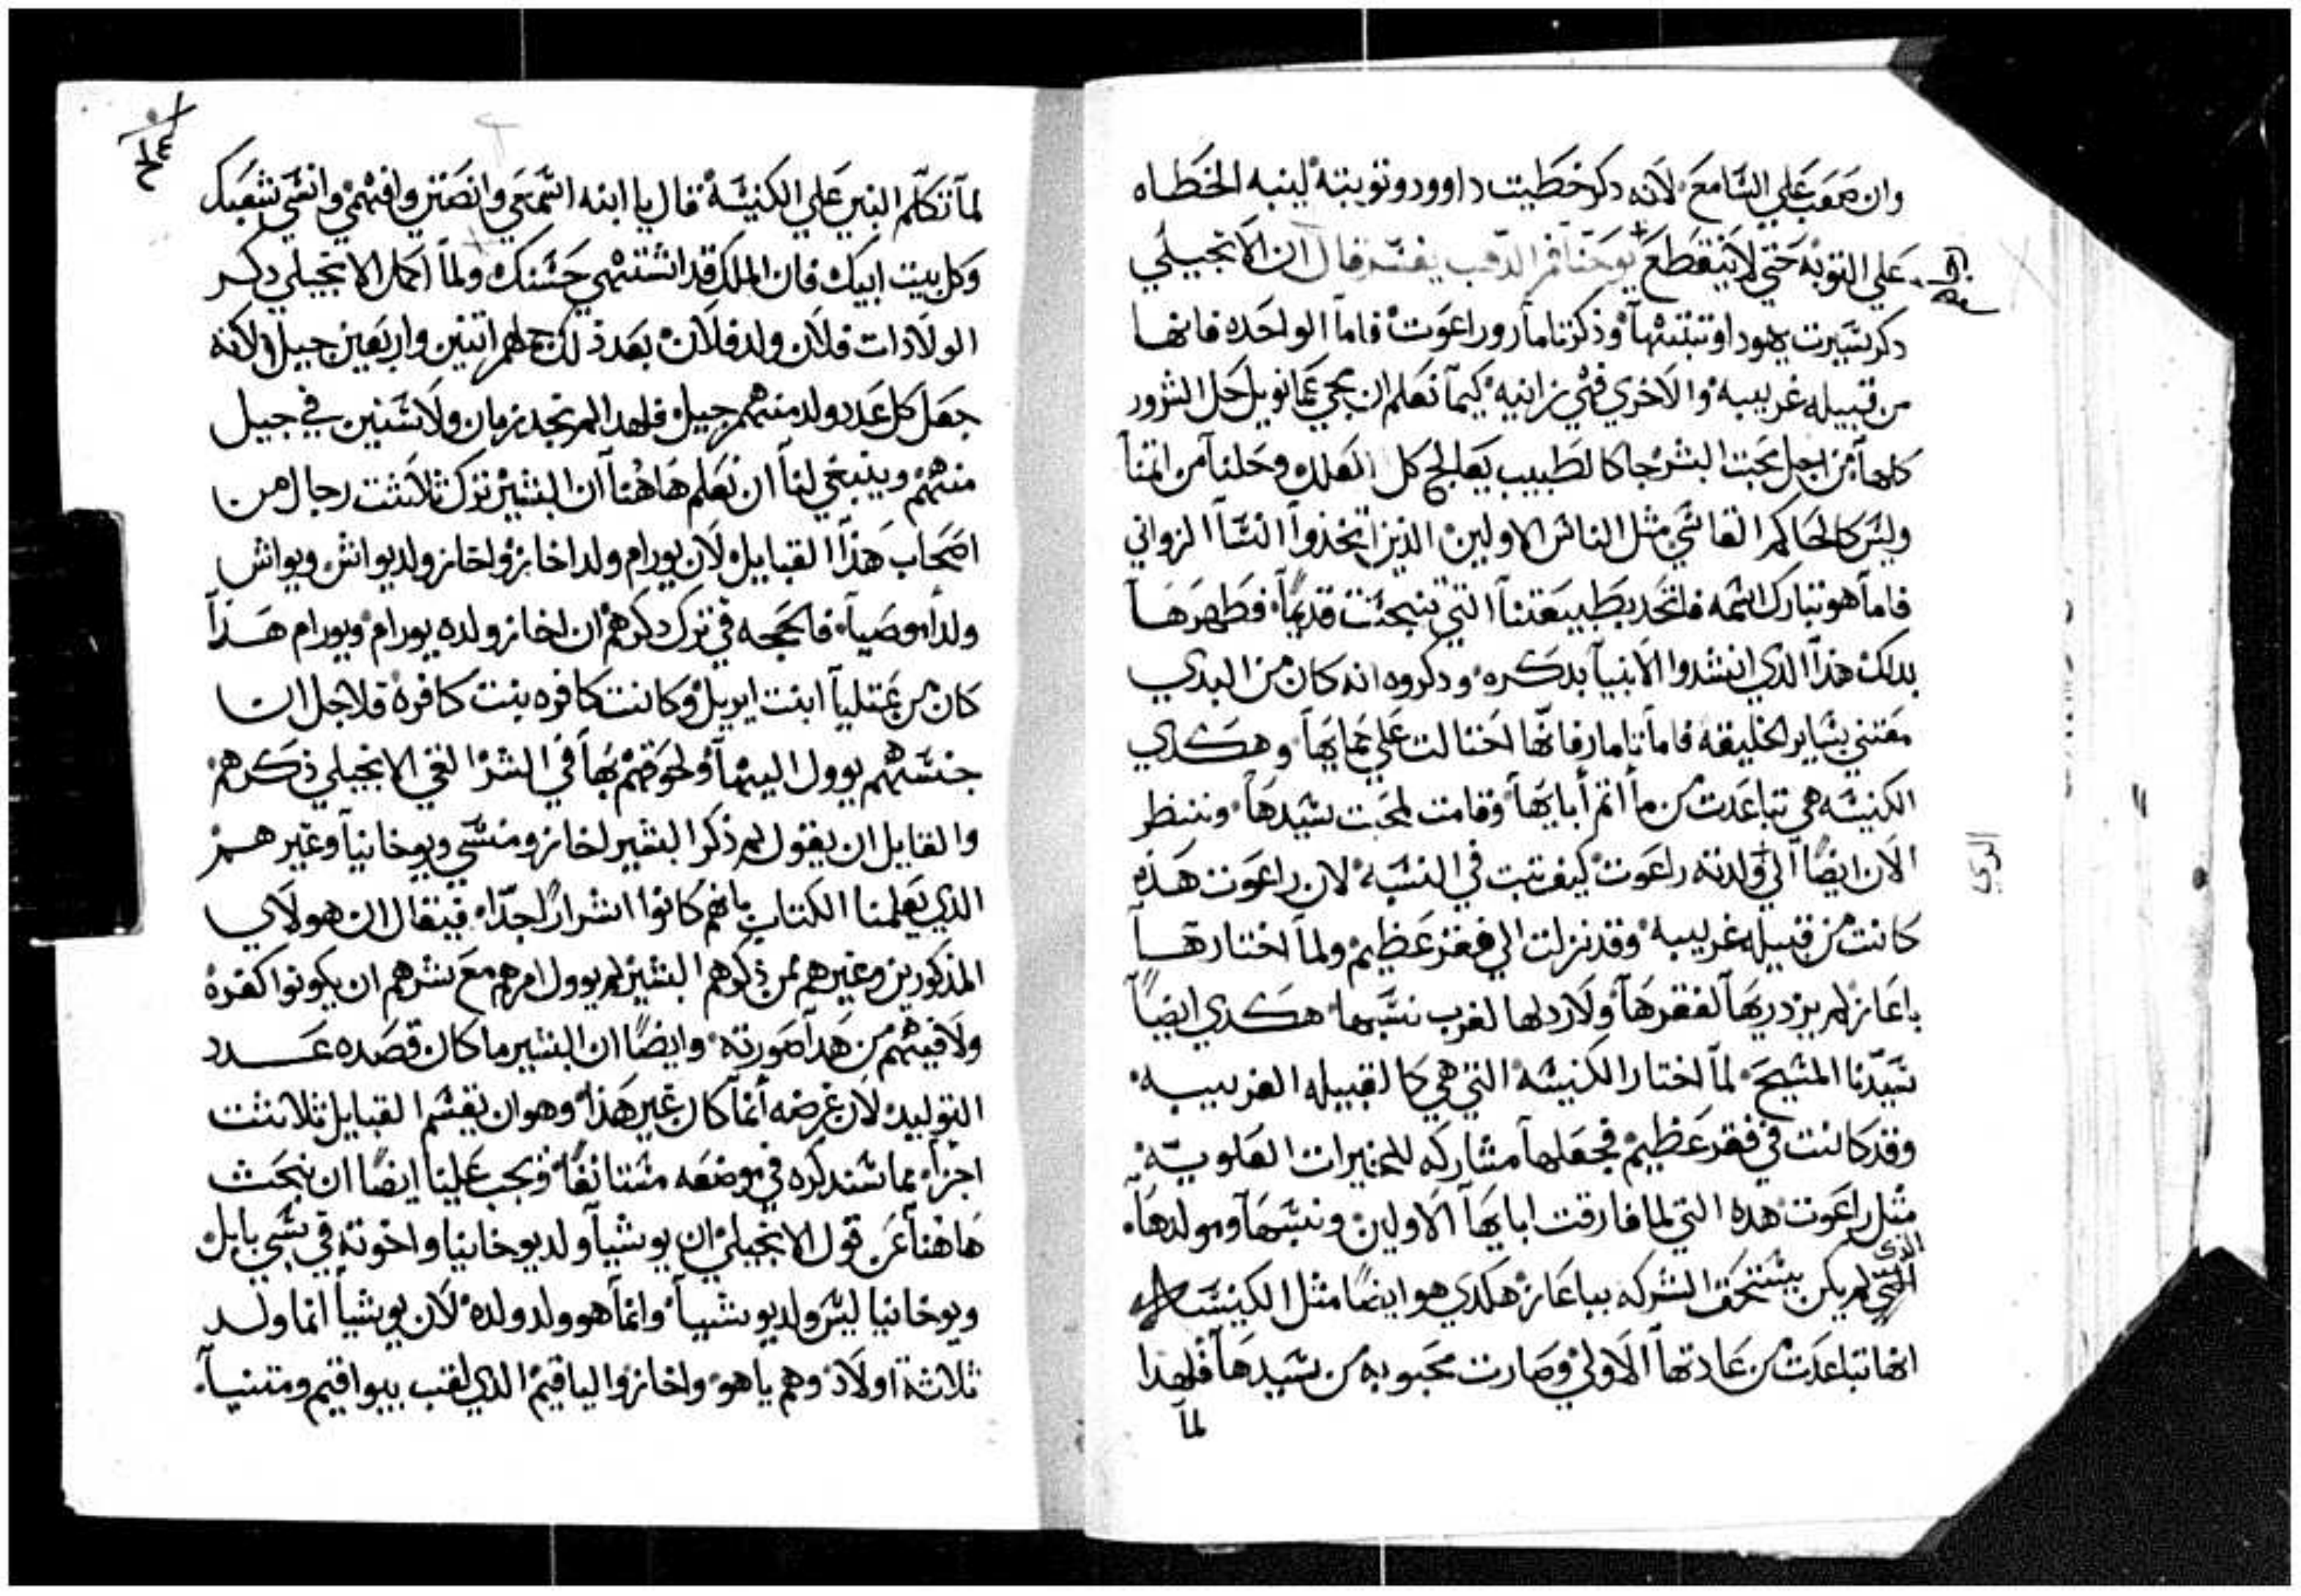 وان صعب علي السامع لانه دكر خطيت داوود وتوبته لينبه الخطاه
علي التوبه حتي لا ينقطع يوحنا فم الدهب يفسر قال ان الانجيلي
دكر سيرت يهودا وتبتيتها وذكر تامار وراعوت فاما الواحده فانها
من قبيله غريبه والاخري فهي زانيه كيما نعلم ان مجي عمانويل حل الشرور
كلها من اجل محبت البشر جا كالطبيب يعالج كل العلل وحلنا من اتمنا
وليس كالحاكم القاسي مثل الناس الاولين الذين اتخذوا النسا الزواني
فاما هو تبارك اسمه فاتحد بطبيعتنا التي تنجثت قديما فطهرها
بدلك هذا الذي انشدوا الانبيا بدكره ودكروه انه كان من البدي
مقتني بساير الخليقه فاما تامار فانها احتالت علي حمايها وهكدي
الكنيسه هي تباعدت من ماأتم أبايها وقامت لمحبت سيدها وننظر
الان ايضا الي ولدته راعوت كيف تبت في النسبه لان راعوت هذه
كانت من قبيله غريبه وقد نزلت الي فقر عظيم ولما اختارها
باعاز لم يزدريها لفقرها ولا ردلها لغرب نسبها هكدي ايضا
سيدنا المسيح لما اختار الكنيسه التي هي كالقبيله الغريبه
وقد كانت في فقر عظيم فجعلها مشاركه للخيرات العلويه
مثل راعوت هده التي لما فارقت ابايها الاولين ونسبها ومولدها
الذي
التي لم يكن يستحق الشركه بباعاز هكدي هو ايضا مثل الكنيسه
انها تباعدت من عادتها الاولي وصارت محبوبه من سيدها فلهدا
لما
لما تكلم النبي علي الكنيسه قال يا ابنه اسمعي وانصتي وافهمي وانسي شعبك
وكل بيت ابيك فان الملك قد اشتهي حسنك ولما اكمل الانجيلي دكر
الولادات فلان ولد فلان بعد ذلك جملهم اتنين واربعين جيل لانه
جعل كل عدد ولد منهم جيل فلهدا لم تجد زمان ولا سنين في جيل
منهم وينبغي لنا ان نعلم هاهنا ان البشير ترك ثلاثت رجال من
اصحاب هذا القبايل لان يورام ولد اخاز ولخاز ولد يواش ويواش
ولد اموصيا فالحجه في ترك دكرهم ان اخاز ولده يورام ويورام هذا
كان من عتليا ابنت ايريل وكانت كافره بنت كافره فلاجل ان
جنسهم يوول اليها ولحوقهم بها في الشر الغي الانجيلي ذكرهم
والقايل ان يقول لم ذكر البشير لخاز ومنسي ويوخانيا وغيرهم
الذي يعلمنا الكتاب بانهم كانوا اشرارا جدا فيقال ان هولاي
المذكورين وغيرهم ممن ذكرهم البشير لم يوول امرهم مع شرهم ان يكونوا كفره
ولا فيهم من هدا صورته وايضا ان البشير ما كان قصده عدد
التوليد لان غرضه أنما كان غير هذا وهو ان يقسم القبايل ثلاثت
اجزا مما سندكره في موضعه مستانفا ويجب علينا ايضا ان نبحث
هاهنا عن قول الانجيلي ان يوشيا ولد يوخانيا واخوته في سبي بابل
ويوخانيا ليس ولد يوشيا وانما هو ولد ولده لان يوشيا انما ولد
ثلاثة اولاد وهم ياهو واخاز والياقيم الذي لقب بيواقيم ومتنيا